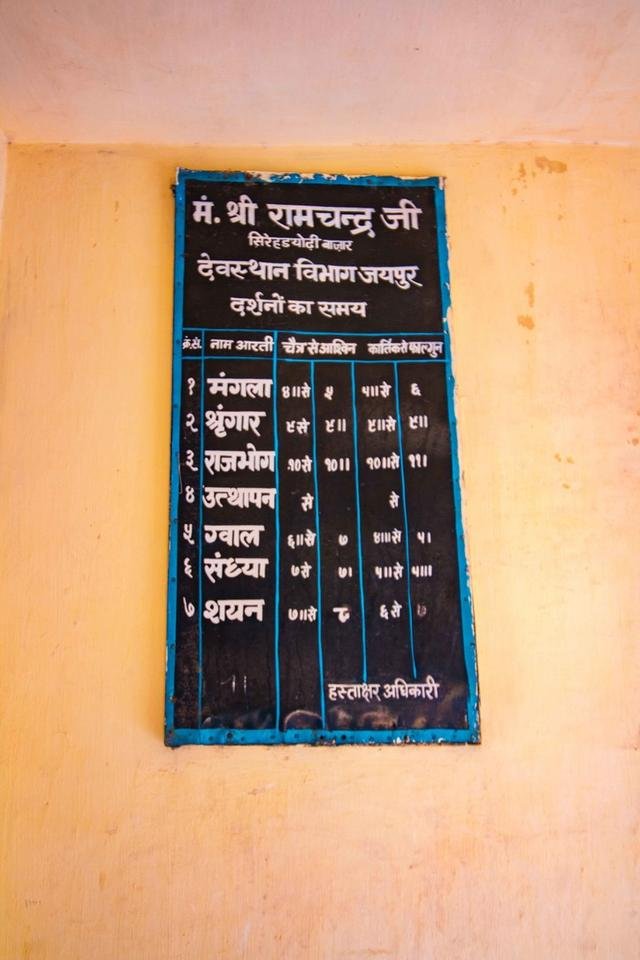 मं. श्री रामचन्द्र जी
सिरेहडयोढ़ी बाज़ार
देवस्थान विभाग जयपुर
दर्शनों का समय
क्रं.सं. नाम आरती चैत्र से आश्विन कार्तिक से फाल्गुन
१ मंगला ४॥ से ५ ५॥ से ६
२ श्रृंगार ९ से ९॥ ९॥ से ९॥
३ राजभोग १० से १०॥ १०॥ से ११।
४ उत्थापन से से
५ ग्वाल ६॥ से ७ ४॥ से ५।
६ संध्या ७ से ७। ५॥ से ५॥।
७ शयन ७॥ से ८ ६ से ७
हस्ताक्षर अधिकारी